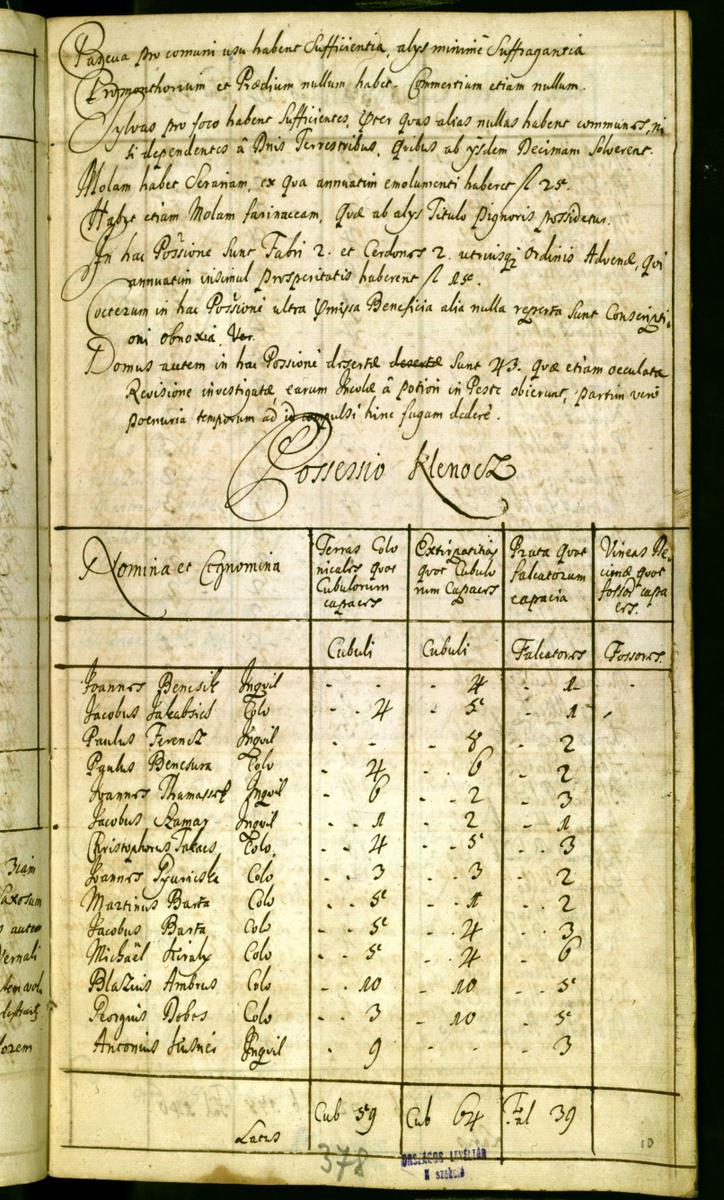 Pascua pro comuni usu habent Sufficientia, alys minimè Suffragantia
Promonthorium et Prædium nullum habet. Commertium etiam nullum.
Sylvas pro foco habent Sufficientes, præter quas alias nullas habent communes, ni
si dependentes â Dnis Terrestribus, quibus ab ysdem Decimam Solverent.
Molam habet Serariam, ex qua annuatim emolumenti haberet fl 25.
Habet etiam Molam farinaceam, Quæ ab alys Titulo Pignoris possidetur.
In hac Possione Sunt Fabri 2. et Cerdones 2. utriusq Ordinis Advenæ, Qui
annuatim insimul prosperitatis haberent fl 15.
Cæterum in hac Possioni ultra præmissa Beneficia alia nulla reperta Sunt Conscripti-
oni obnoxia.
Domus autem in hac Possioni desertæ desertæ Sunt 43. quæ etiam oculata
Revisione investigatæ, earum Incolæ â potiori in Peste obierunt, partim verò
poenuria temporum ad id compulsi hinc fugam dederè.
Possessio Klenocz
Nomina et Cognomina
Terras Colo
nicales quot
Cubulorum
capaces
Extirpatitias
quot Cubulo
rum Capaces
Prata quot
falcatorum
capacia
Vineas De-
cimæ quot
fossor capa
ces.
Cubuli Cubuli Falcatores Fossores.
Joannes Bencsik Inquil - - - 4 - 1 -
Jacobus Jakabsics Colo - 4 - 5 - 1
Paulus Ferencz Inquil - - - 8 - 2
Paulus Bencsura Colo - 4 - 6 - 2
Joannes Thamassek Inquil - 6 - 2 - 3
Jacobus Szamay Inquil - 1 - 2 - 1
Christophorus Takacs Colo - 4 - 5 - 3
Joannes Gyuricska Colo - 3 - 3 - 2
Martinus Barta Colo - 5 - 1 - 2
Jacobus Barta Colo - 5 - 4 - 3
Michaël Kiraly Colo - 5 - 4 - 6
Blazius Ambrus Colo - 10 - 10 - 5
Georgius Dobos Colo - 3 - 10 - 5
Antonius Inquil - 9 - - - 3
Latus Cub 59 Cub 64 Fal 39
378
ORSZÁGOS LEVÉLTÁR
N szekció
10